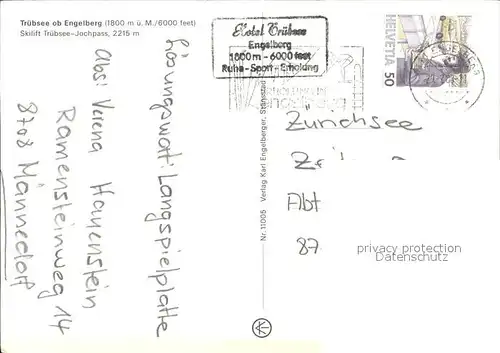 Trübsee ob Engelberg (1800 m ü. M./6000 feet)
Skilift Trübsee-Jochpass, 2215 m
Lösungswort: Langspielplatte
Abs: Verena Hauenstein
Ramensteinweg 14
8708 Männedorf
Nr. 11005 Verlag Karl Engelberger, Stansstad
Hotel Trübsee
Engelberg
1800 m - 6000 feet
Ruhe - Sport - Erholung
HELVETIA 50
ENGELBERG
Zürichsee
Abt
87
privacy protection
Datenschutz